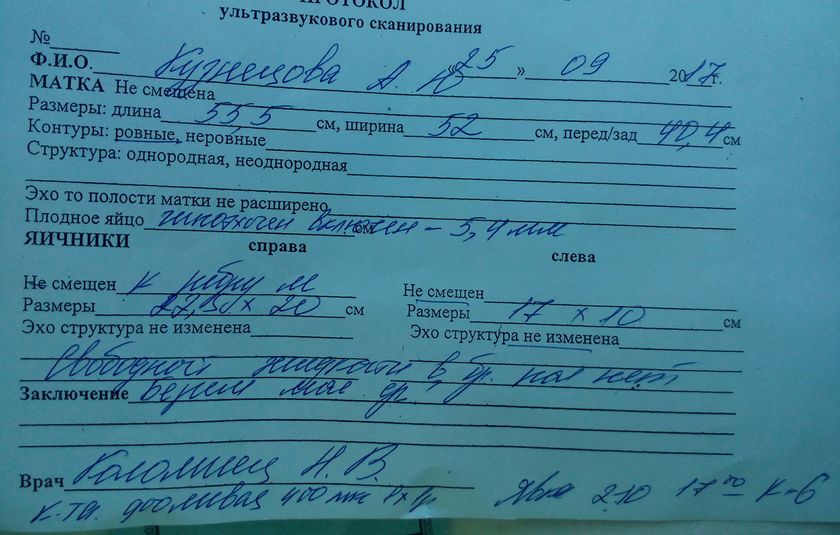 ПРОТОКОЛ
ультразвукового сканирования
№
Ф.И.О. Кузнецова А. Ю «25» 09 2017г.
МАТКА Не смещена
Размеры: длина 55,5 см, ширина 52 см, перед/зад 40,4 см
Контуры: ровные, неровные
Структура: однородная, неоднородная
Эхо то полости матки не расширено
Плодное яйцо гипоэхоген включен – 5,4 мм см
ЯИЧНИКИ справа слева
Не смещен к ребру м Не смещен
Размеры х 20 см Размеры 17 х 10 см
Эхо структура не изменена Эхо структура не изменена
Свободной жидкости в бр. пол нет
Заключение Берем мал ср.
Врач Коломиец Н. В.
К-та. фолиевая 400 мкг Явка 2.10 17 00 К-6